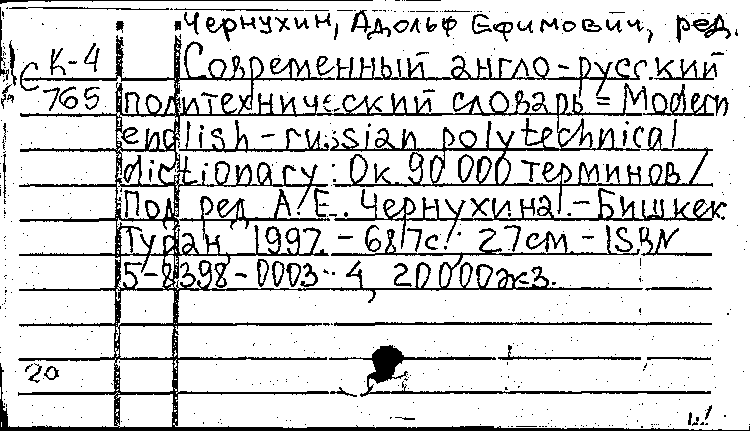 Чернухин, Адольф Ефимович, ред.
С К-4
765
Современный англо-русский
политехнический словарь = Modern
english-russian polytechnical
dictionary: Ок. 90 000 терминов /
Под ред. А. Е. Чернухина. - Бишкек
Туран, 1997. - 687с.; 27см. - ISBN
5-8398-0003-4, 20000экз.
20